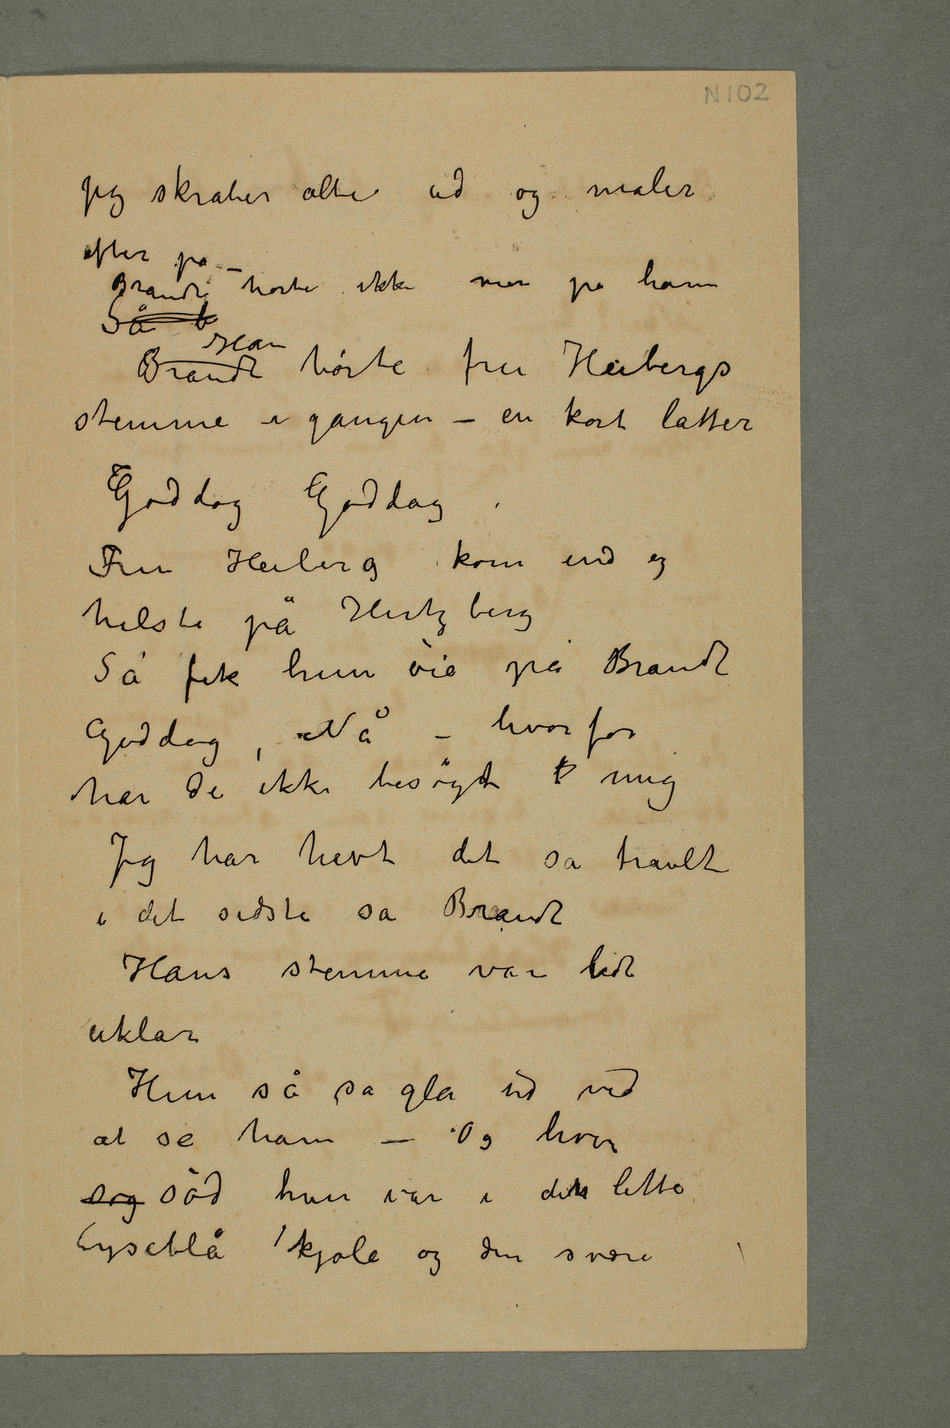 N102
Jeg skraber alting ud og maler
efter på –
Brandt hørte ikke mer på ham
Så b
Han
Brandt hørte fru Heibergs
stemme i gangen – en kort latter
Goddag Goddag.
Fru Heiberg kom ind og
hilste på Hertzberg
Så fik hun øie på Brandt
Goddag, Nå – hvorfor
har De ikke besøgt mig
Jeg har havt det sa travlt
i det sidste sa Brandt
Hans stemme var lidt
uklar
Hun så sa gla ud ved
at se ham – Og hvor
sog sød hun var i den lette
lyseblå kjole og den svære